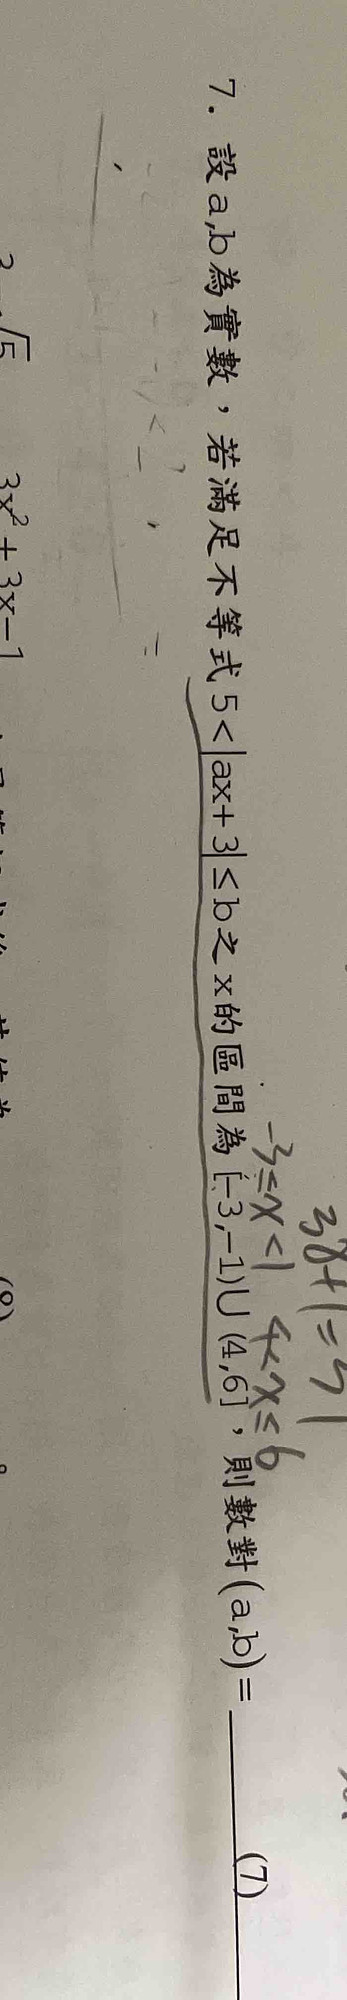 3x+1=5
-3≤x<1 4<x≤6
7. 設a,b為實數，若滿足不等式5<|ax+3|≤b之x的區間為[-3,-1)∪(4,6]，則數對(a,b)=____(7)____
3-√5 3x²+3x-1
(8) 。